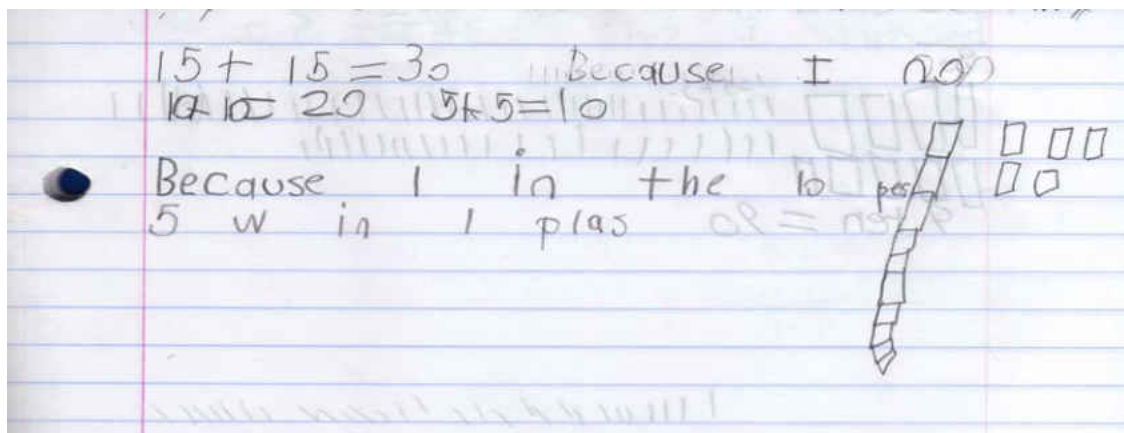 15 + 15 = 30 Because I no
10+10= 20 5+5=10
Because 1 in the 10 pes
5 w in 1 plas